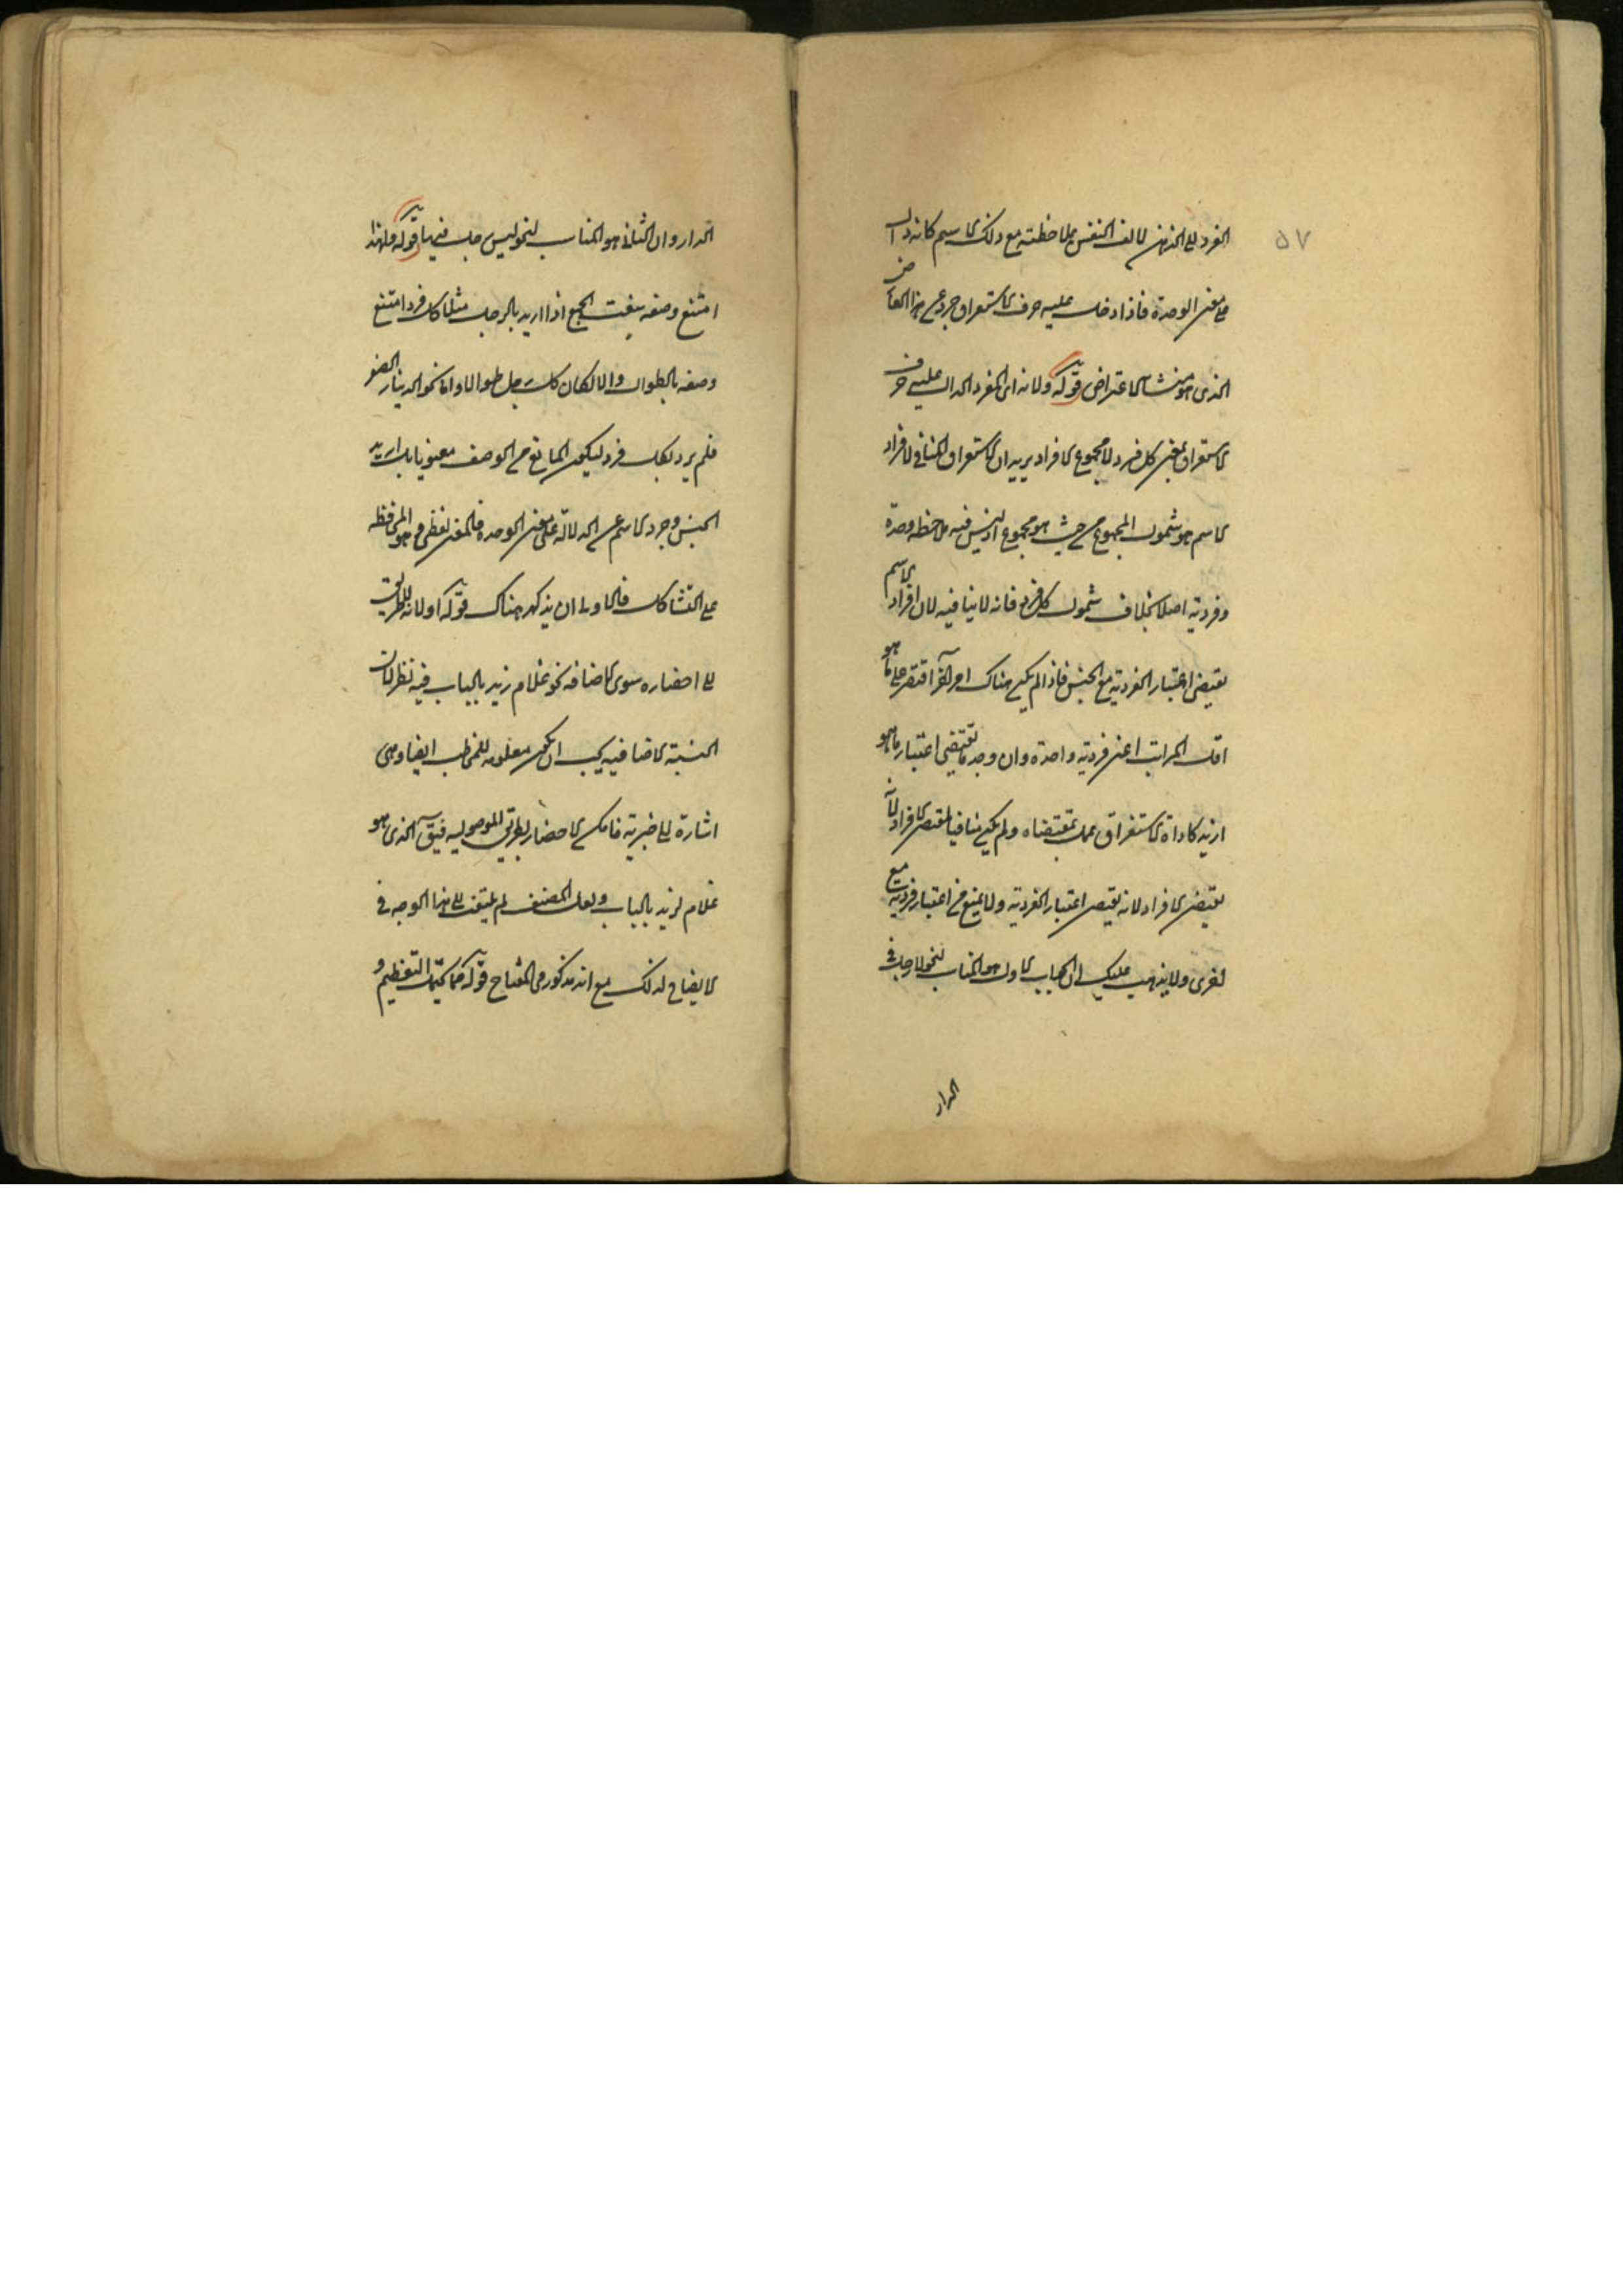 ٥٧
الفرد الى الذهن لالف النفس بملاحظته مع ذلك الاسم كانه دل
على معنى الوحدة فاذا دخلت عليه حرف الاستغراق جرد عن هذا العارض
الذى هو منشأ الاعتراض قوله ولانه اى المفرد الدال عليه حرف
الاستغراق بمعنى كل فرد لا مجموع الافراد يريد ان الاستغراق المنافى لافراد
الاسم هو شمول المجموع من حيث هو مجموع اذ ليس فيه ملاحظة وحدة
وفردية اصلا بخلاف شمول كل فرد فانه لا ينافيه لان افراد الاسم
يقتضى اعتبار الفردية مع الجنس فاذا لم يكن هناك امر آخر اقتصر على ما هو
اقل المراتب اعنى فردية واحدة وان وجد ما يقتضى اعتبار ما هو
ازيد كاداة الاستغراق عمل بمقتضاه ولم يكن منافيا لمقتضى الافراد لانه
يقتضى الافراد لانه يقتضى اعتبار الفردية ولا يمنع من اعتبار فردية مع
اخرى ولا يذهب عليك ان الجواب الاول هو المناسب لنحو لا رجل فى
الدار
الدار وان الثانى هو المناسب لنحو ليس رجل فيها قوله ولهذا
امتنع وصفه بنعت الجمع اذا اريد بالرجل مثلا كل فرد امتنع
وصفه بالطوال والا لكان كل رجل طوالا واما نحو الدينار الصفر
فلم يرد بكل فرد ليكون المانع من الوصف معنويا بل اريد
الجنس وجرد الاسم عن الدلالة على معنى الوحدة فالمعنى لفظى وهو المحافظة
على التشاكل فالاولى ان يذكر هناك قوله او لانه لا طريق
الى احضاره سوى الاضافة نحو غلام زيد بالباب فيه نظر لان
النسبة الاضافية يجب ان تكون معلومة للمخاطب ايضا وهى
اشارة الى خبرية فامكن الاحضار بطريق الموصولية فيق الذى هو
غلام لزيد بالباب ولعل المصنف لم يلتفت الى هذا الوجه فى
الايضاح لذلك مع انه مذكور فى المفتاح قوله مما يحتمل التعظيم و